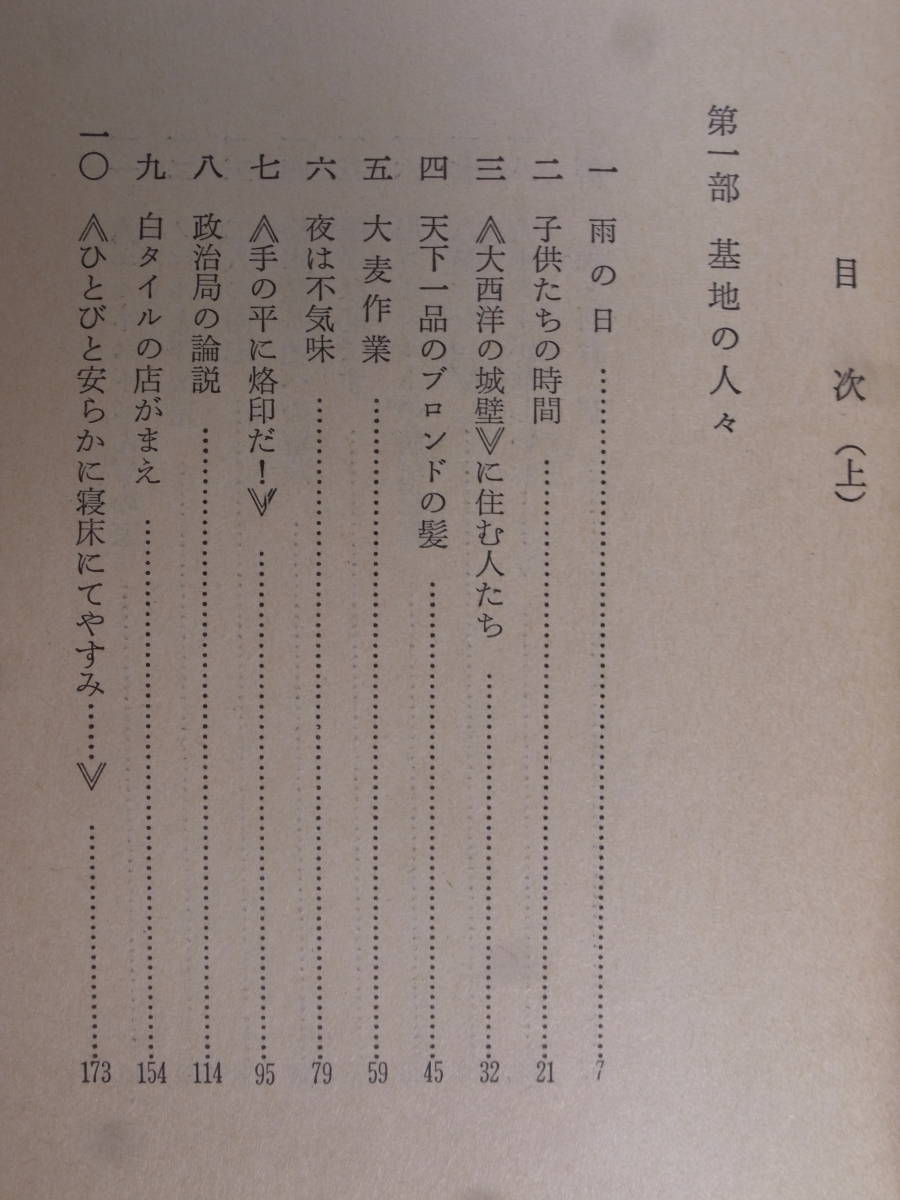 目次（上）
第一部 基地の人々
一 雨の日……………7
二 子供たちの時間……………21
三 《大西洋の城壁》に住む人たち……………32
四 天下一品のブロンドの髪……………45
五 大麦作業……………59
六 夜は不気味……………79
七 《手の平に烙印だ！》……………95
八 政治局の論説……………114
九 白タイルの店がまえ……………154
一〇 《ひとびと安らかに寝床にてやすみ……》……………173